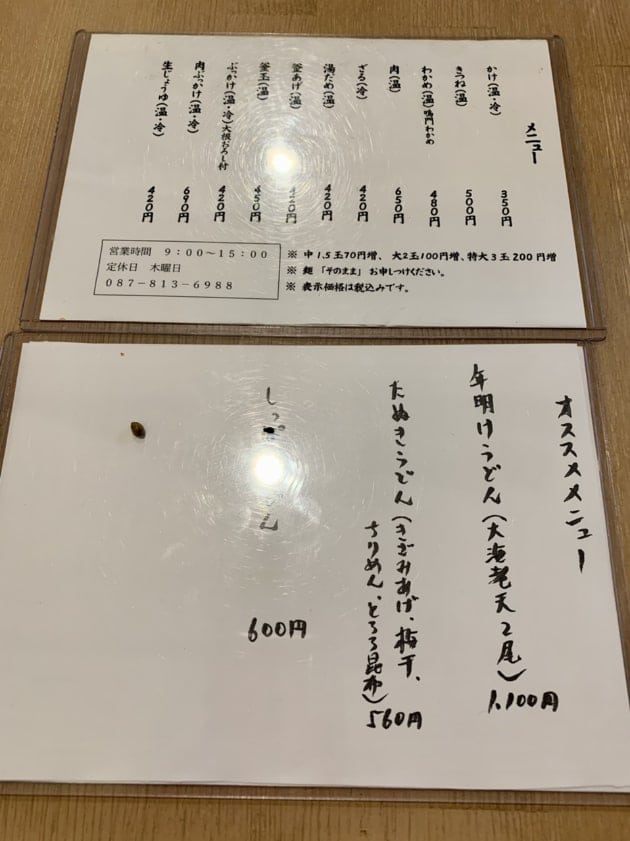 メニュー
かけ(温・冷) 350円
きつね(温) 500円
わかめ(温)鳴門わかめ 480円
肉(温) 650円
ざる(冷) 420円
湯だめ(温) 420円
釜あげ(温) 420円
釜玉(温) 450円
ぶっかけ(温・冷)大根おろし付 420円
肉ぶっかけ(温・冷) 690円
生じょうゆ(温・冷) 420円
※ 中1.5玉70円増、大2玉100円増、特大3玉200円増
※ 麺「そのまま」お申しつけください。
※ 表示価格は税込みです。
営業時間 9:00~15:00
定休日 木曜日
087-813-6988
オススメメニュー
年明けうどん(大海老天2尾) 1,100円
たぬきうどん(きざみあげ、梅干、
ちりめん、とろろ昆布) 560円
しっ
600円